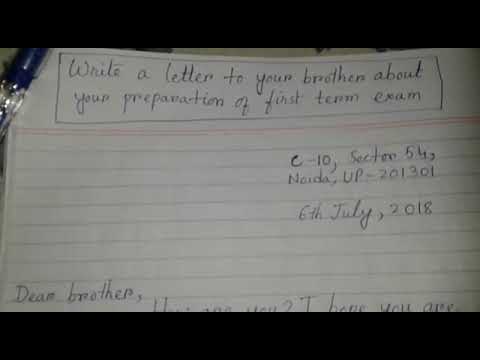 Write a letter to your brother about
your preparation of first term exam
C-10, Sector 54,
Noida, UP-201301
6th July, 2018
Dear brother,
How are you? I hope you are